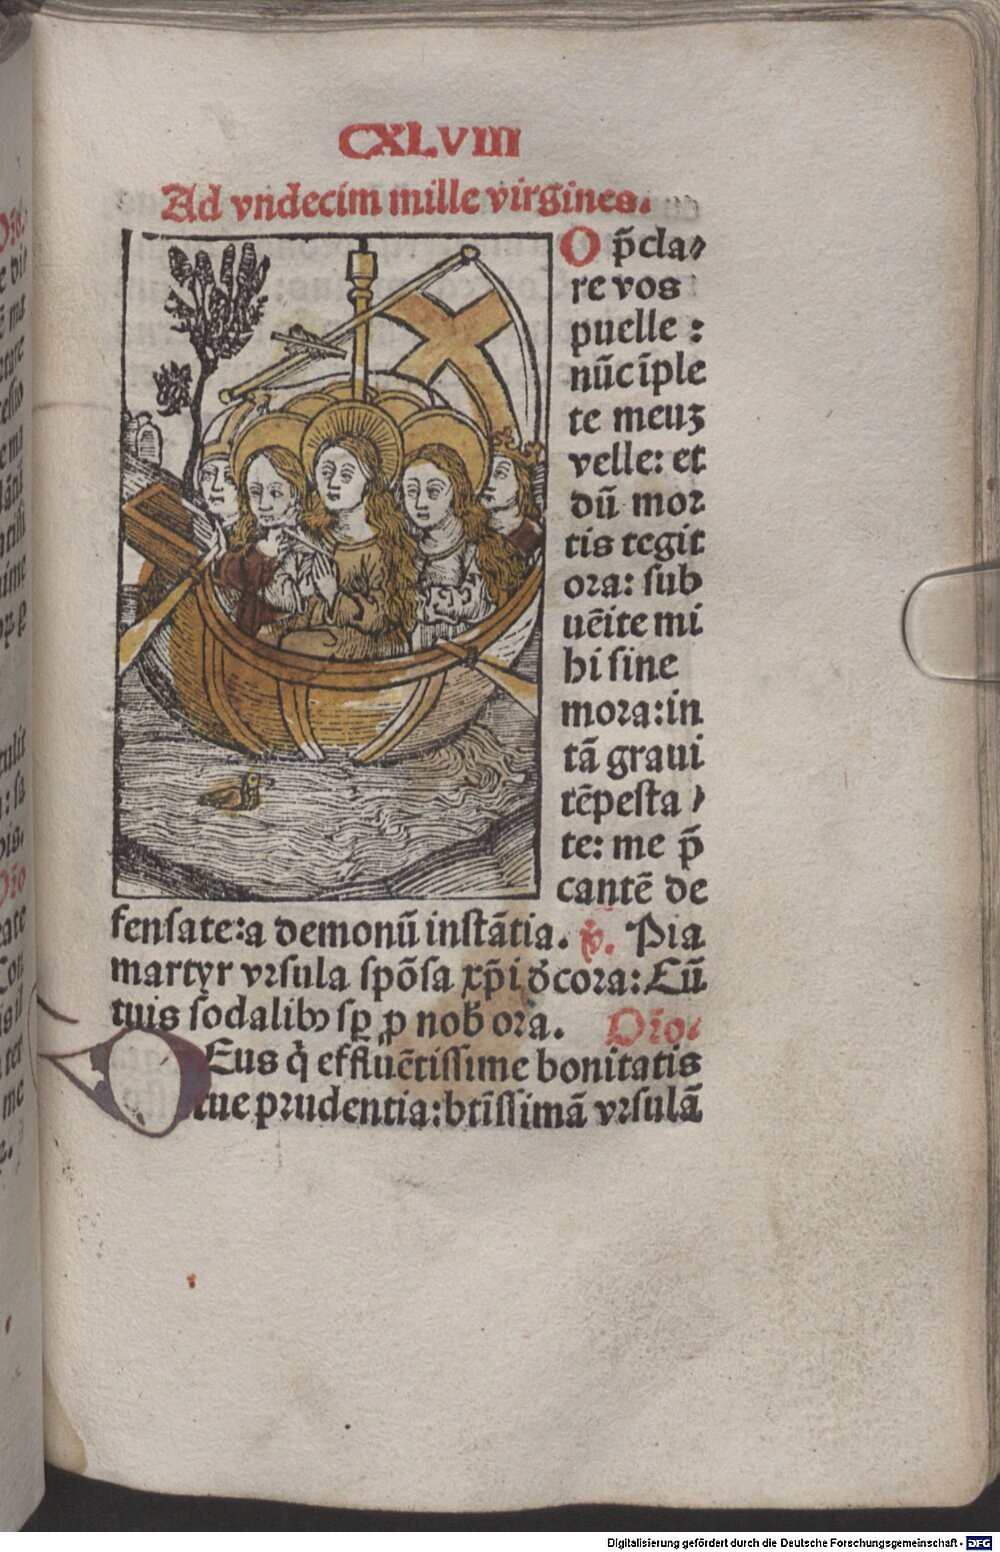 CXLVIII
Ad vndecim mille virgines.
O p̄cla⸗
re vos
puelle :
nūc īple
te meuʒ
velle: et
dū mor
tis tegit
ora: sub
uēite mi
hi sine
mora: in
tā graui
tēpesta⸗
te: me p̄
cantē de
fensate: a demonū instātia. ℣. Pia
martyr vrsula spōsa xp̄i d̄cora: Cū
tuis sodalibꝰ sꝑ ꝑ nob̄ ora. Or̄o.
DEus q̄ effluētissime bonitatis
tue prudentia: btīssimā vrsulā
Digitalisierung gefördert durch die Deutsche Forschungsgemeinschaft - DFG